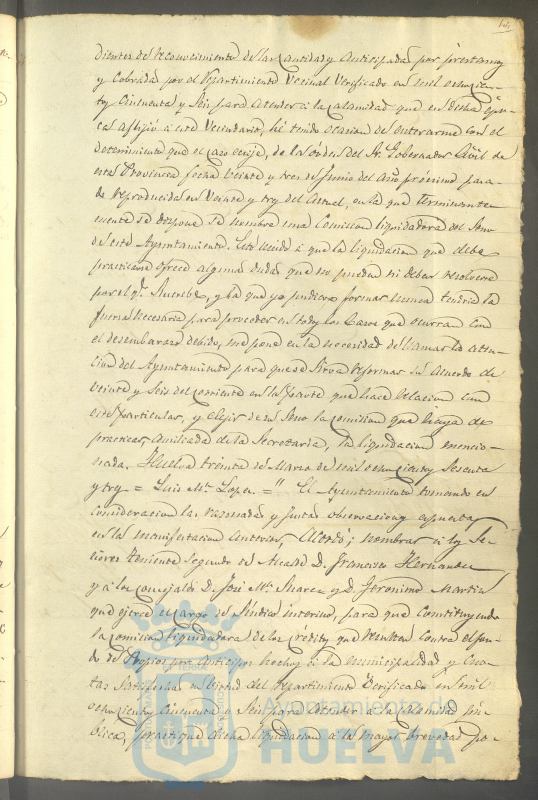 dientes de reconocimiento de las cantidades anticipadas por prestamos
y Cobradas por el repartimiento Vecinal verificado en mil ochocien-
tos Cincuenta y Seis para atender a la calamidad que en dicha épo-
ca aflijió a este Vecindario, hé tenido ocasion de enterarme con el
detenimiento que el caso exije, de la órden del Sr. Gobernador Civil de
esta Provincia fecha Veinte y tres de Junio del año próximo pasa-
do reproducida en Veinte y tres del actual, en la que terminante-
mente se dispone se nombre una Comision liquidadora del seno
de este Ayuntamiento. Este unido á que la liquidacion que debe
practicarse ofrece algunas dudas que no pueden ni deben resolverse
por el q.e Suscribe, y la que yo pudiera formar nunca tendria la
fuerza necesaria para proceder en todos los Casos que ocurran con
el desembarazo debido, me pone en la necesidad de llamar la aten-
cion del Ayuntamiento para que se sirva reformar su Acuerdo de
Veinte y seis del corriente en la parte que hace relacion con
este particular, y elejir de su seno la comision que haya de
practicar, ausiliada de la Secretaria, la liquidacion mencio-
nada. Huelva treinta de Marzo de mil ochocientos sesenta
y tres = Luis M.ª Lopez = " El Ayuntamiento tomando en
consideracion las razonadas y justas observaciones espuestas
en la manifestacion anterior, Acordó; nombrar á los Se-
ñores Teniente segundo de Alcalde D. Francisco Hernandez
y á los concejales D. José M.ª Suarez y D. Jeronimo Martin
que ejerce el cargo de Sindico interino, para que Constituyendo
la comision liquidadora de los créditos que resulten contra el fon-
do de Propios por anticipos hechos á la municipalidad y Cuo-
tas satisfechas en virtud del repartimiento verificado en mil
ochocientos Cincuenta y Seis para atender a la calamidad pú-
blica, practique dicha liquidacion a la mayor brevedad po-
Ayuntamiento de
HUELVA